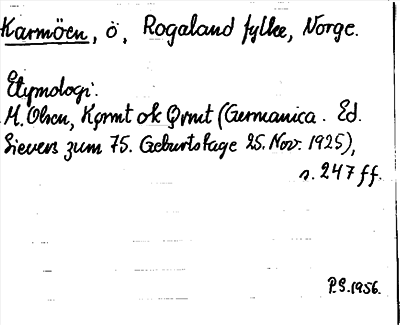 Karmöen, ö, Rogaland fylke, Norge.
Etymologi.
M. Olsen, Kǫrmt ok Ǫrmt (Germanica. Ed.
Sievers zum 75. Geburtstage 25. Nov. 1925),
s. 247 ff.
P.S. 1956.